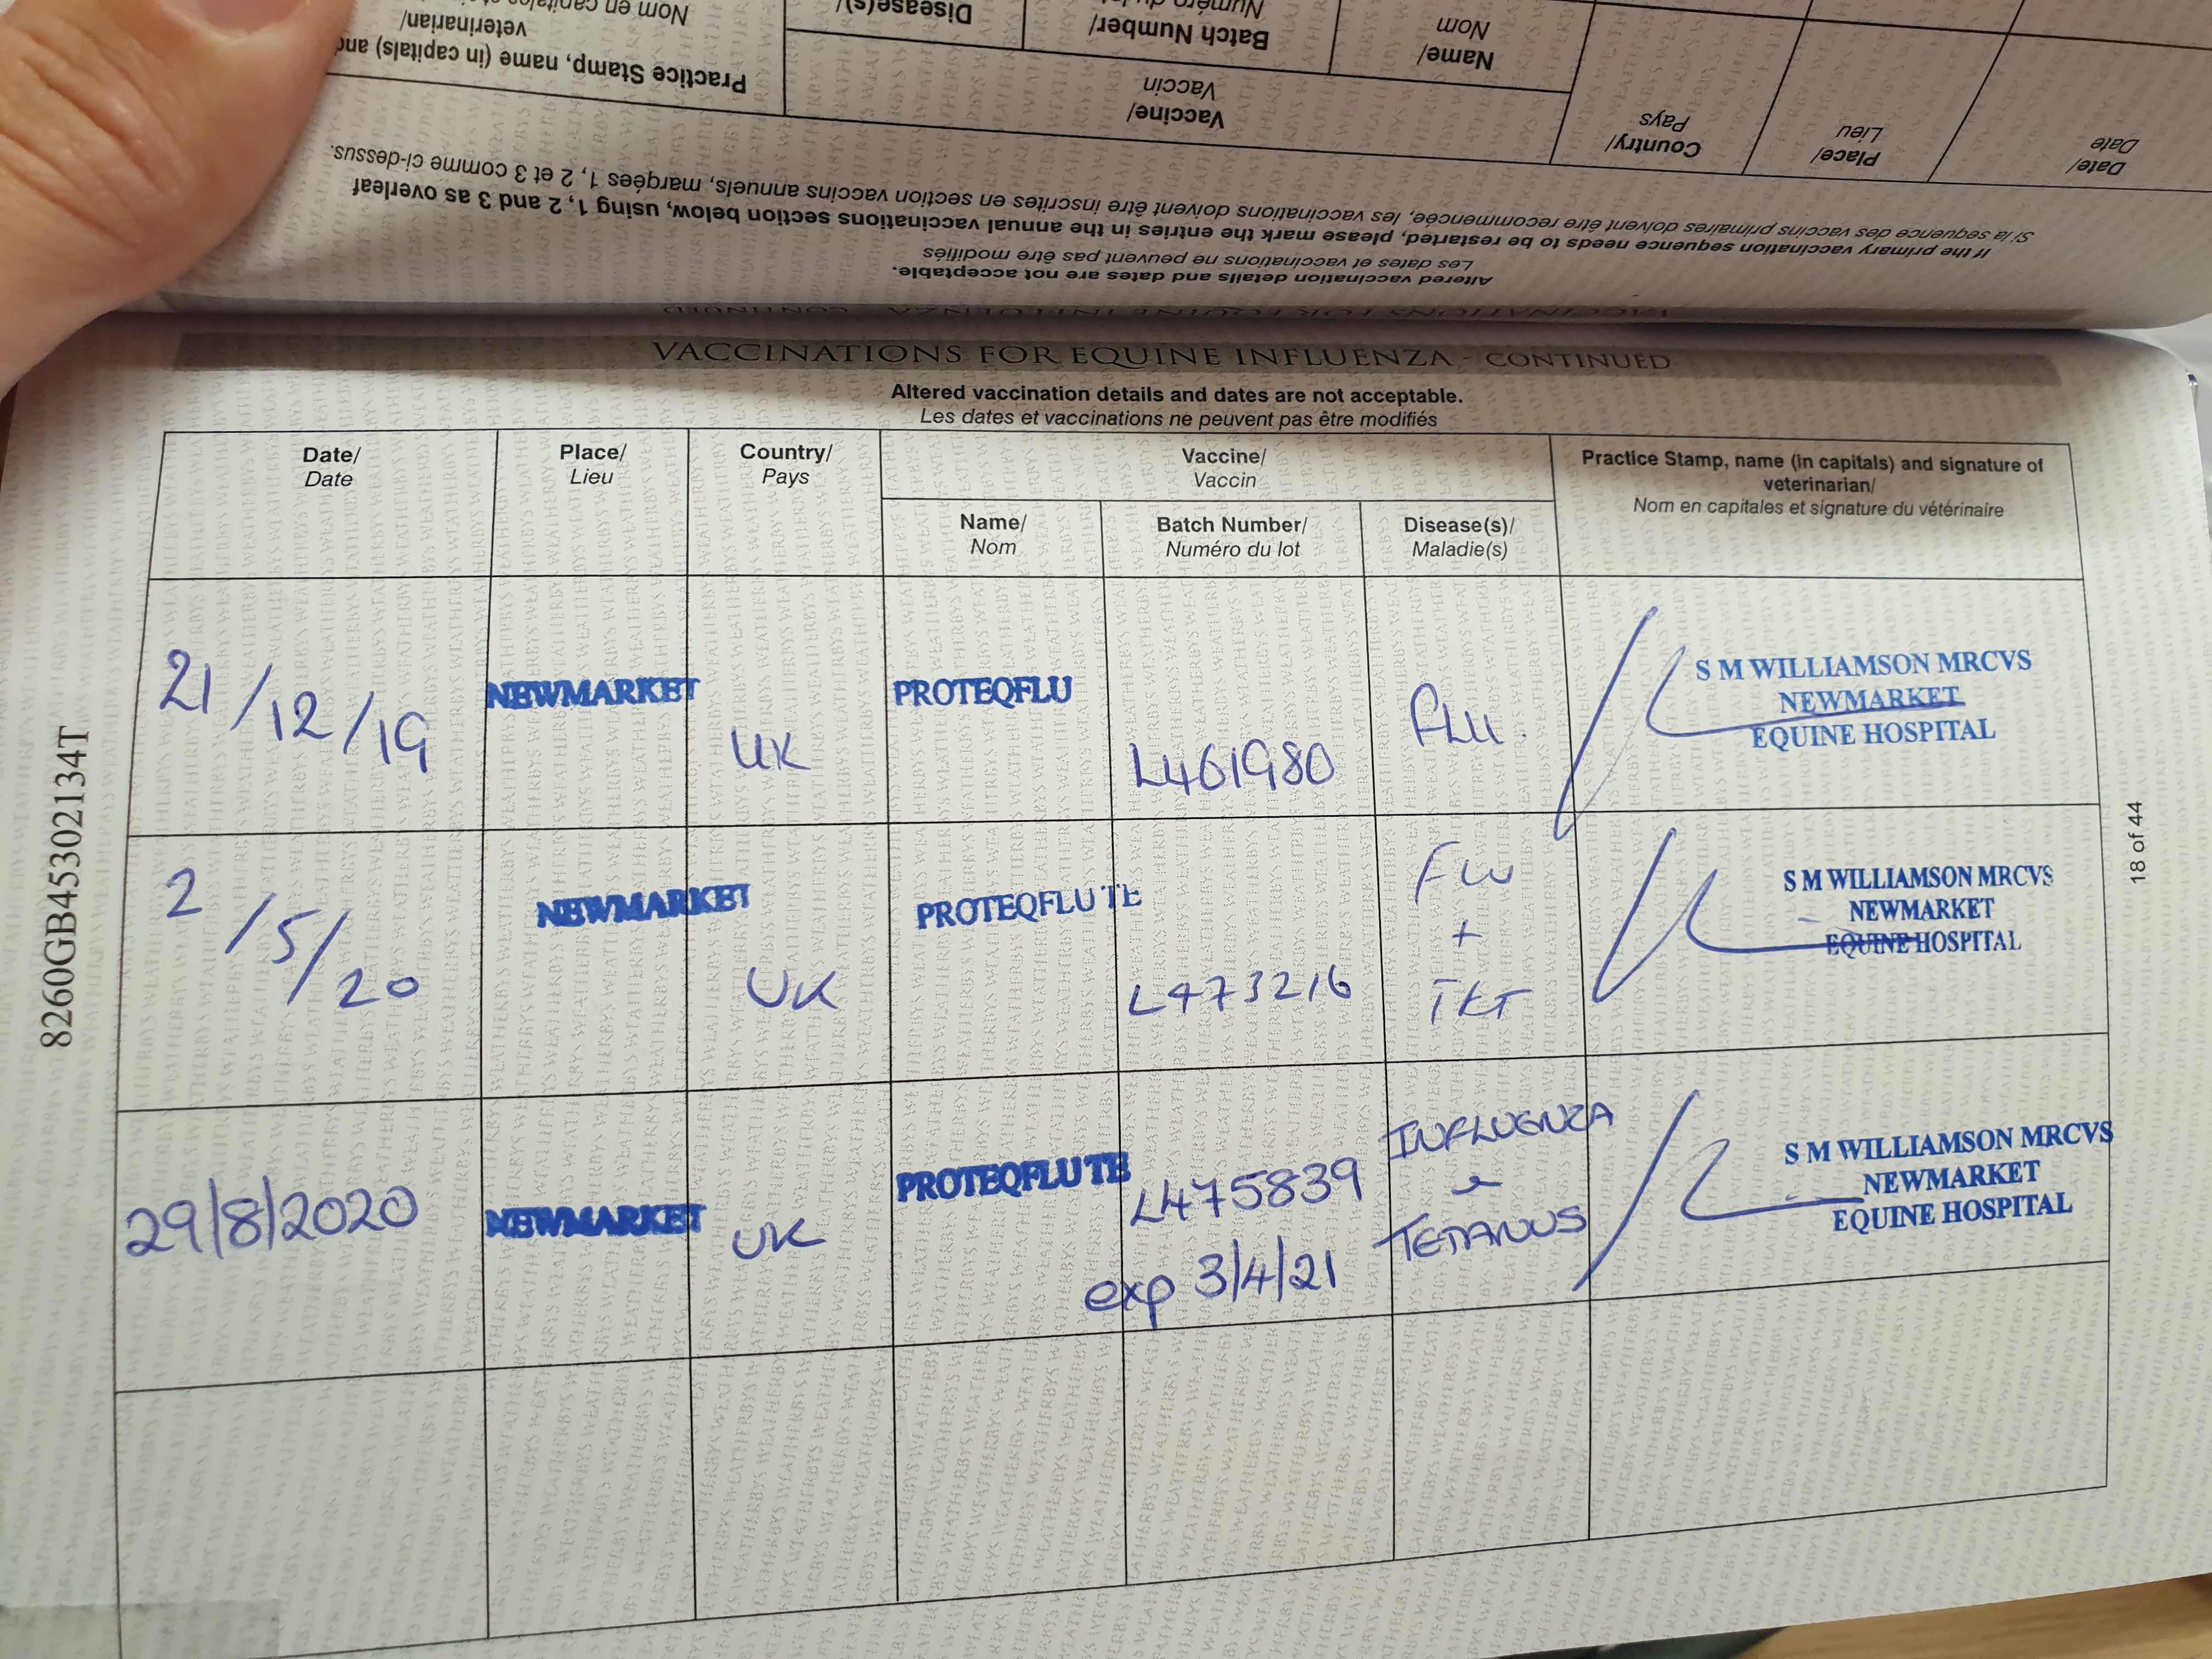 Nom en capitales
veterinarian/
Practice Stamp, name (in capitals) and
Disease(s)/
Batch Number/
Name/
Nom
Vaccine/
Vaccin
Country/
Pays
Place/
Lieu
Date/
Date
Si la sequence des vaccins primaires doivent être recommencée, les vaccinations doivent être inscrites en section vaccins annuels, marqées 1, 2 et 3 comme ci-dessus.
If the primary vaccination sequence needs to be restarted, please mark the entries in the annual vaccinations section below, using 1, 2 and 3 as overleaf
Les dates et vaccinations ne peuvent pas être modifiés
Altered vaccination details and dates are not acceptable.
VACCINATIONS FOR EQUINE INFLUENZA - CONTINUED
VACCINATIONS FOR EQUINE INFLUENZA - CONTINUED
Altered vaccination details and dates are not acceptable.
Les dates et vaccinations ne peuvent pas être modifiés
Date/
Date
Place/
Lieu
Country/
Pays
Vaccine/
Vaccin
Practice Stamp, name (in capitals) and signature of
veterinarian/
Nom en capitales et signature du vétérinaire
Name/
Nom
Batch Number/
Numéro du lot
Disease(s)/
Maladie(s)
21/12/19
NEWMARKET
UK
PROTEQFLU
L461980
FLU.
S M WILLIAMSON MRCVS
NEWMARKET
EQUINE HOSPITAL
2/5/20
NEWMARKET
UK
PROTEQFLU TE
L473216
FLU
+
TET
S M WILLIAMSON MRCVS
NEWMARKET
EQUINE HOSPITAL
29/8/2020
NEWMARKET
UK
PROTEQFLU TE
L475839
exp 3/4/21
INFLUENZA
TETANUS
S M WILLIAMSON MRCVS
NEWMARKET
EQUINE HOSPITAL
8260GB45302134T
18 of 44